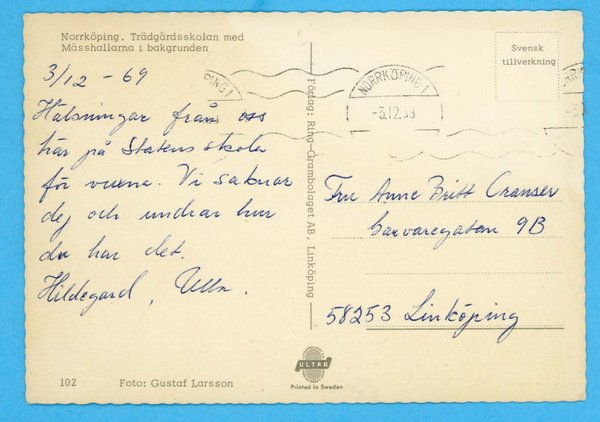 Norrköping. Trädgårdsskolan med
Mässhallarna i bakgrunden
3/12 - 69
Hälsningar från oss
här på Statens skola
för vuxna. Vi saknar
dej och undrar hur
du har det.
Hildegard, Ulla.
102 Foto: Gustaf Larsson
Förlag: Ring-Grambolaget AB, Linköping
ULTRA
Printed in Sweden
PING 1
NORRKÖPING 1
-3.12.69
Svensk
tillverkning
Fru Anne Britt Cranser
Garvaregatan 9B
58253 Linköping